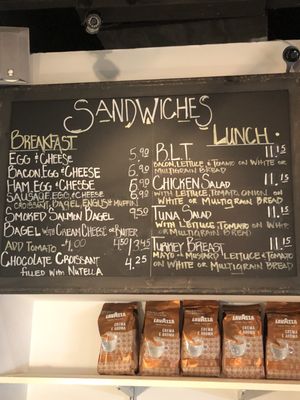 SANDWICHES
BREAKFAST
EGG & CHEESE 5.90
BACON, EGG & CHEESE 6.90
HAM, EGG & CHEESE 6.90
SAUSAGE, EGG & CHEESE
CROISSANT, BAGEL, ENGLISH MUFFIN
SMOKED SALMON BAGEL 9.50
BAGEL WITH CREAM CHEESE OR BUTTER 4.30/3.45
ADD TOMATO - $1.00
CHOCOLATE CROISSANT 4.25
FILLED WITH NUTELLA
LUNCH
BLT 11.15
BACON, LETTUCE & TOMATO ON WHITE OR
MULTIGRAIN BREAD
CHICKEN SALAD 11.15
WITH LETTUCE, TOMATO, ONION ON
WHITE OR MULTIGRAIN BREAD
TUNA SALAD 11.15
WITH LETTUCE, TOMATO ON WHITE
OR MULTIGRAIN BREAD
TURKEY BREAST 11.15
MAYO OR MUSTARD LETTUCE & TOMATO
ON WHITE OR MULTIGRAIN BREAD
LAVAZZA LAVAZZA LAVAZZA LAVAZZA LAVAZZA
CREMA E AROMA CREMA E AROMA CREMA E AROMA CREMA E AROMA CREMA E AROMA